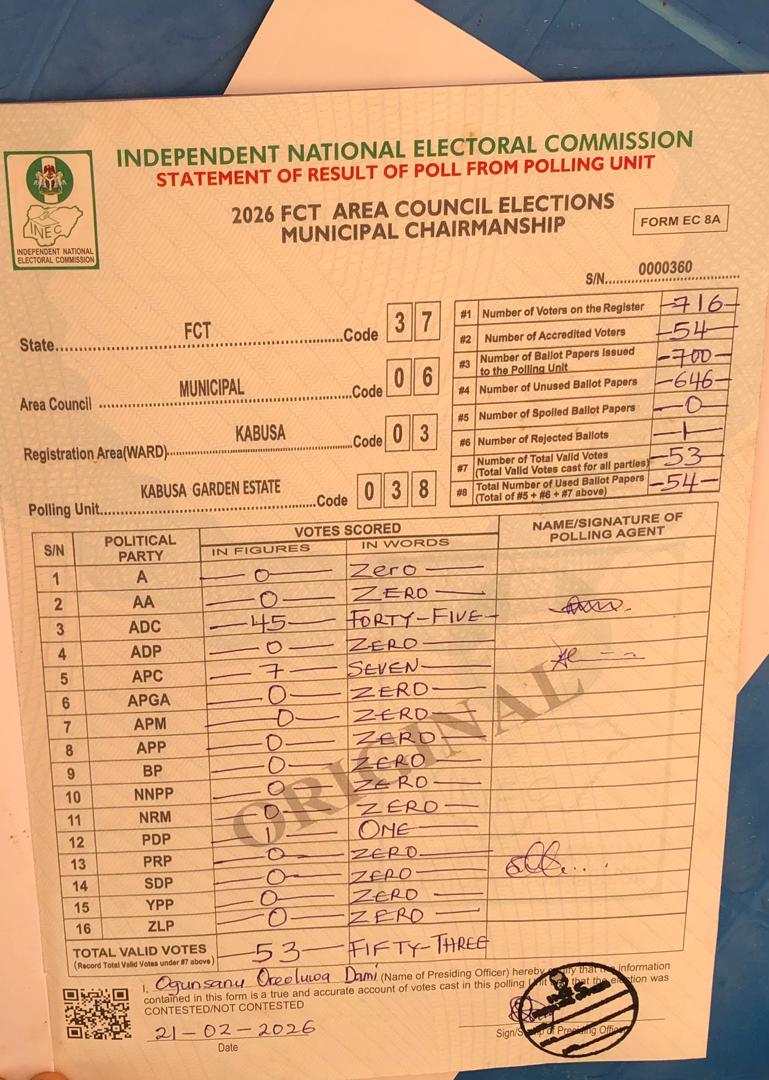 INDEPENDENT NATIONAL ELECTORAL COMMISSION
STATEMENT OF RESULT OF POLL FROM POLLING UNIT
2026 FCT AREA COUNCIL ELECTIONS
MUNICIPAL CHAIRMANSHIP
FORM EC 8A
INEC
INDEPENDENT NATIONAL
ELECTORAL COMMISSION
S/N 0000360
State FCT Code 3 7
Area Council MUNICIPAL Code 0 6
Registration Area(WARD) KABUSA Code 0 3
Polling Unit KABUSA GARDEN ESTATE Code 0 3 8
#1 Number of Voters on the Register 716
#2 Number of Accredited Voters 54
#3 Number of Ballot Papers Issued to the Polling Unit 700
#4 Number of Unused Ballot Papers 646
#5 Number of Spoiled Ballot Papers 0
#6 Number of Rejected Ballots 1
#7 Number of Total Valid Votes (Total Valid Votes cast for all parties) 53
#8 Total Number of Used Ballot Papers (Total of #5 + #6 + #7 above) 54
S/N POLITICAL PARTY VOTES SCORED NAME/SIGNATURE OF POLLING AGENT
IN FIGURES IN WORDS
1 A 0 Zero
2 AA 0 ZERO
3 ADC 45 FORTY-FIVE
4 ADP 0 ZERO
5 APC 7 SEVEN
6 APGA 0 ZERO
7 APM 0 ZERO
8 APP 0 ZERO
9 BP 0 ZERO
10 NNPP 0 ZERO
11 NRM 0 ZERO
12 PDP 1 ONE
13 PRP 0 ZERO
14 SDP 0 ZERO
15 YPP 0 ZERO
16 ZLP 0 ZERO
ORIGINAL
TOTAL VALID VOTES 53 FIFTY-THREE
(Record Total Valid Votes under #7 above)
I, Ogunsanu Oreoluwa Dami (Name of Presiding Officer) hereby that the information
contained in this form is a true and accurate account of votes cast in this polling that the election was
CONTESTED/NOT CONTESTED
21-02-2026
Date
Sign/ of Presiding Officer